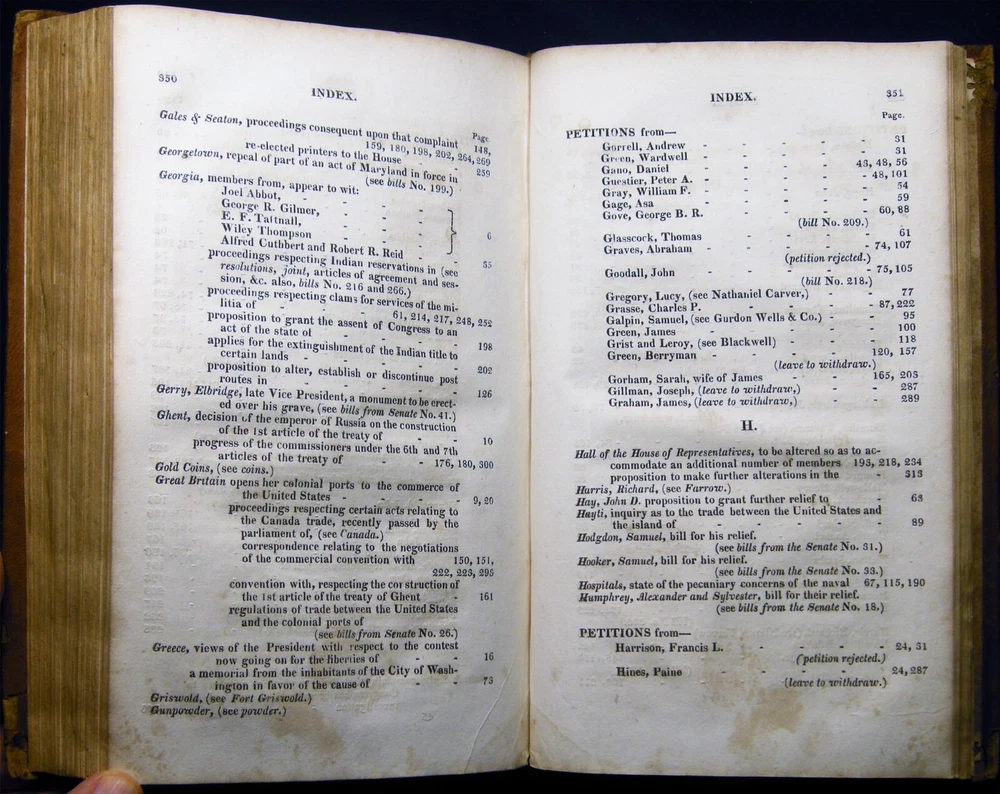 350
INDEX.
Page.
Gales & Seaton, proceedings consequent upon that complaint 148,
159, 180, 198, 202, 264, 269
re-elected printers to the House - - 259
Georgetown, repeal of part of an act of Maryland in force in
(see bills No. 199.)
Georgia, members from, appear to wit:
Joel Abbot, - - -
George R. Gilmer, - - -
E. F. Tattnall, - - -
Wiley Thompson - - - } 6
Alfred Cuthbert and Robert R. Reid -
proceedings respecting Indian reservations in (see 35
resolutions, joint, articles of agreement and ses-
sion, &c. also, bills No. 216 and 266.)
proceedings respecting clams for services of the mi-
litia of - - - 61, 214, 217, 248, 252
proposition to grant the assent of Congress to an
act of the state of - - - - 198
applies for the extinguishment of the Indian title to
certain lands - - - - - 202
proposition to alter, establish or discontinue post
routes in - - - - - 126
Gerry, Elbridge, late Vice President, a monument to be erect-
ed over his grave, (see bills from Senate No. 41.)
Ghent, decision of the emperor of Russia on the construction
of the 1st article of the treaty of - - 10
progress of the commissioners under the 6th and 7th
articles of the treaty of - - 176, 180, 300
Gold Coins, (see coins.)
Great Britain opens her colonial ports to the commerce of
the United States - - - - - 9, 20
proceedings respecting certain acts relating to
the Canada trade, recently passed by the
parliament of, (see Canada.)
correspondence relating to the negotiations
of the commercial convention with 150, 151,
222, 223, 293
convention with, respecting the construction of
the 1st article of the treaty of Ghent - 161
regulations of trade between the United States
and the colonial ports of
(see bills from Senate No. 26.)
Greece, views of the President with respect to the contest
now going on for the liberties of - - 16
a memorial from the inhabitants of the City of Wash-
ington in favor of the cause of - - 73
Griswold, (see Fort Griswold.)
Gunpowder, (see powder.)
INDEX.
351
Page.
PETITIONS from—
Gorrell, Andrew - - - - - 31
Green, Wardwell - - - - - 31
Gano, Daniel - - - - 43, 48, 56
Guestier, Peter A. - - - - - 48, 101
Gray, William F. - - - - - 54
Gage, Asa - - - - - 59
Gove, George B. R. - - - - 60, 88
(bill No. 209.)
Glasscock, Thomas - - - - 61
Graves, Abraham - - - - - 74, 107
(petition rejected.)
Goodall, John - - - - - 75, 105
(bill No. 218.)
Gregory, Lucy, (see Nathaniel Carver,) - - 77
Grasse, Charles P. - - - - 87, 222
Galpin, Samuel, (see Gurdon Wells & Co.) - - 95
Green, James - - - - 100
Grist and Leroy, (see Blackwell) - - - 118
Green, Berryman - - - - 120, 157
(leave to withdraw.)
Gorham, Sarah, wife of James - - 165, 203
Gillman, Joseph, (leave to withdraw,) - - 287
Graham, James, (leave to withdraw,) - - 289
H.
Hall of the House of Representatives, to be altered so as to ac-
commodate an additional number of members 193, 218, 234
proposition to make further alterations in the - 313
Harris, Richard, (see Farrow.)
Hay, John D. proposition to grant further relief to - 63
Hayti, inquiry as to the trade between the United States and
the island of - - - - - 89
Hodgdon, Samuel, bill for his relief.
(see bills from the Senate No. 31.)
Hooker, Samuel, bill for his relief.
(see bills from the Senate No. 33.)
Hospitals, state of the pecuniary concerns of the naval 67, 115, 190
Humphrey, Alexander and Sylvester, bill for their relief.
(see bills from the Senate No. 18.)
PETITIONS from—
Harrison, Francis L. - - - - 24, 31
(petition rejected.)
Hines, Paine - - - - 24, 287
(leave to withdraw.)